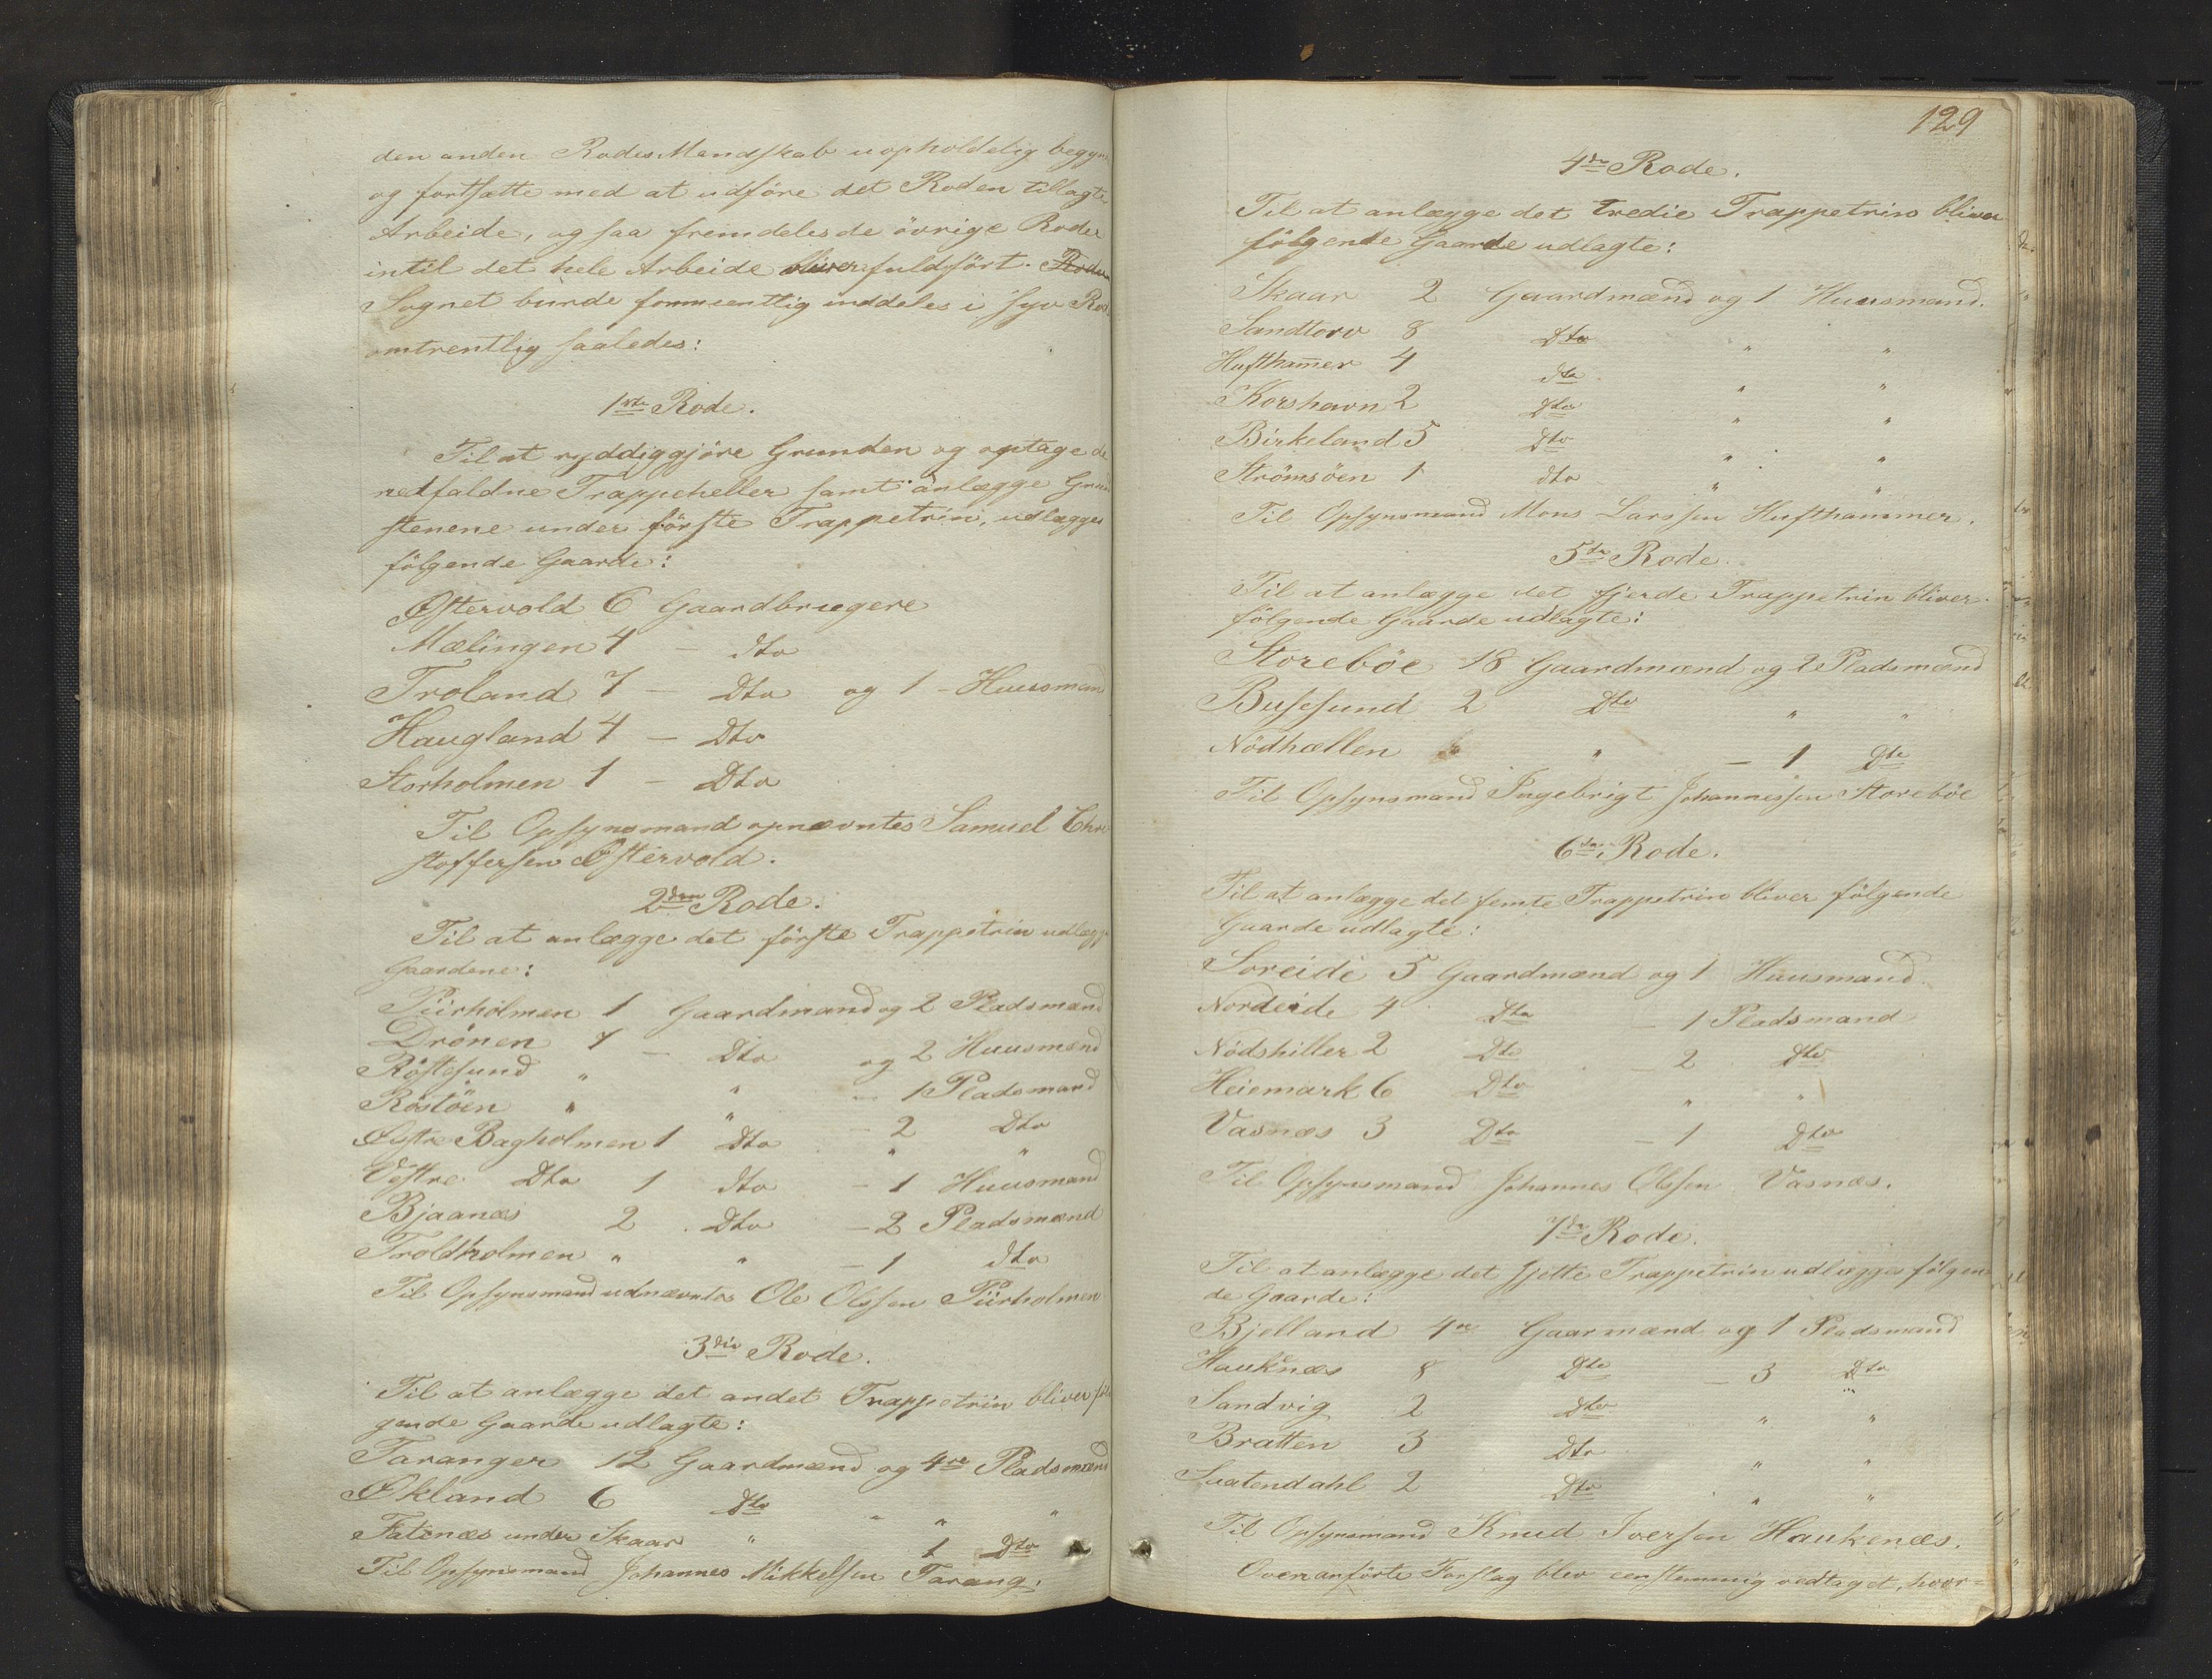 den anden Rodes Mandskab uopholdelig begyn
og fortsætte med at udföre det Roden tillagte
Arbeide, og saa fremdeles de övrige Roder
intil det hele Arbeide bliver fuldfört. Roden
Sognet burde formeentlig inddeles i syv Rod
omtrentlig saaledes:
1ste Rode.
Til at ryddiggjöre Grunden og optage de
nedfaldne Trappeheller samt anlægge Grund
stenene under förste Trappetrin, udlægges
fölgende Gaarde:
Østervold 6 Gaardbrugere
Mælingen 4 — dto
Troland 7 — Dto og 1 - Huusmand
Haugland 4 — Dto
Storholmen 1 — Dto
Til Opsynsmand opnævntes Samuel Chri
stoffersen Østervold.
2den Rode.
Til at anlægge det förste Trappetrin udlægge
Gaardene:
Piirholmen 1 Gaardmand og 2 Pladsmænd
Drönen 7 — Dto og 2 Huusmænd
Röstesund " " — 1 Pladsmand
Röstöen " " — 2 Dto
Østre Bagholmen 1 Dto " "
Vestre Dto 1 dto — 1 Huusmand
Bjaanæs 2 Dto — 2 Pladsmænd
Troldholmen " " — 1 dto
Til Opsynsmand udnævntes Ole Olssen Piirholmen
3die Rode.
Til at anlægge det andet Trappetrin bliver föl
gende Gaarde udlagte:
Taranger 12 Gaardmænd og 4re Pladsmænd
Økland 6 Dto " " "
Fatnæs under Skaar " 1 Dto
Til Opsynsmand Johannes Mikkelsen Tarang.
129
4de Rode.
Til at anlægge det tredie Trappetrin bliver
fölgende Gaarde udlagte:
Skaar 2 Gaardmænd og 1 Huusmand.
Sandtorv 8 Dto " "
Huftham̄er 4 dto " "
Korshavn 2 Dto " "
Birkeland 5 Dto " "
Strömsöen 1 dto " "
Til Opsynsmand Mons Larssen Hufthammer.
5te Rode.
Til at anlægge det fjerde Trappetrin bliver
fölgende Gaarde udlagte:
Storeböe 18 Gaardmænd og 2 Pladsmænd
Busesund 2 Dto " "
Nödhællen " " — 1 Dto
Til Opsynsmand Ingebrigt Johannessen Storeböe
6te Rode.
Til at anlægge det femte Trappetrin bliver fölgende
Gaarde udlagte:
Soreide 5 Gaardmænd og 1 Huusmand.
Nordeide 4 Dto — 1 Pladsmand
Nödshiller 2 Dto — 2 Dto
Heiemark 6 Dto " "
Vasnæs 3 Dto — 1 Dto
Til Opsynsmand Johannes Olssen Vasnæs.
7de Rode.
Til at anlægge det sjette Trappetrin udlægges fölgen
de Gaarde:
Bjelland 4re Gaarmænd og 1 Pladsmand
Hauknæs 8 Dto — 3 Dto
Sandvig 2 Dto " "
Bratten 3 Dto " "
Suatendahl 2 Dto " "
Til Opsynsmand Knud Iversen Haukenæs.
Ovenanförte Forslag blev eenstemmig vedtaget, hvor=